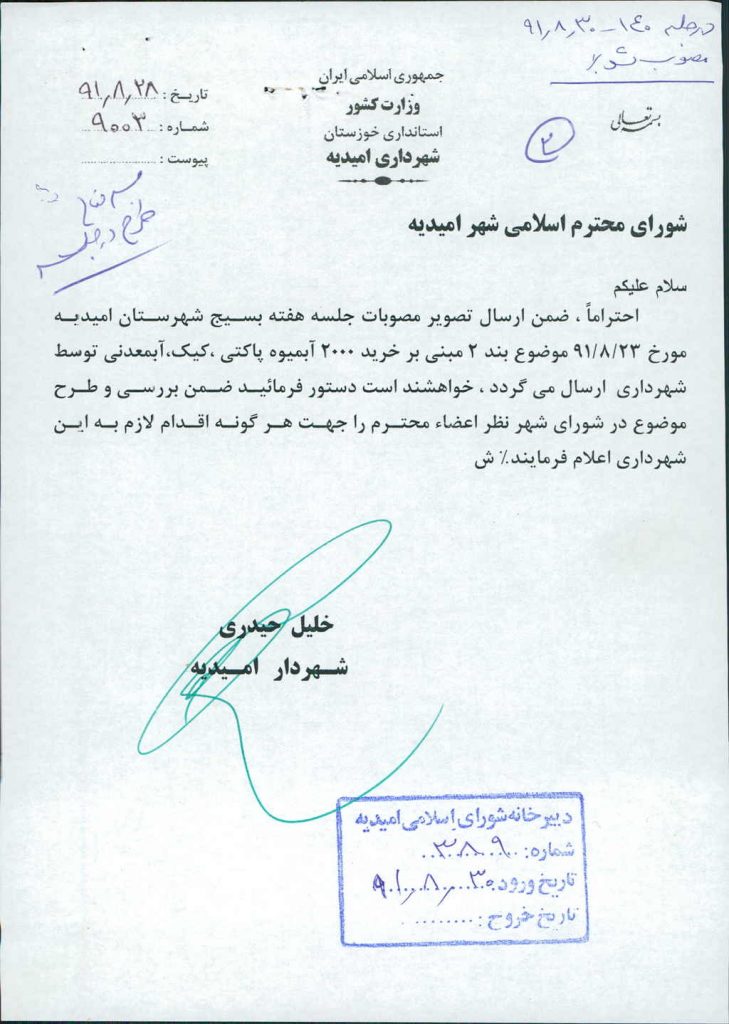 در جلسه ۱۴۰ - ۹۱٫۸٫۳۰
مصوب شد
بسمه تعالی
۲
جمهوری اسلامی ایران
وزارت کشور
استانداری خوزستان
شهرداری امیدیه
تاریـخ : ۹۱٫۸٫۲۸
شمـاره : ۹۰۰۳
پیوسـت :
طرح در جلسه
شورای محترم اسلامی شهر امیدیه
سلام علیکم
احتراماً ، ضمن ارسال تصویر مصوبات جلسه هفته بسیج شهرستان امیدیه
مورخ ۹۱/۸/۲۳ موضوع بند ۲ مبنی بر خرید ۲۰۰۰ آبمیوه پاکتی ،کیک،آبمعدنی توسط
شهرداری ارسال می گردد ، خواهشند است دستور فرمائید ضمن بررسی و طرح
موضوع در شورای شهر نظر اعضاء محترم را جهت هر گونه اقدام لازم به این
شهرداری اعلام فرمایند.٪ ش
خلیل حیدری
شـهردار امـیدیه
دبیرخانه شورای اسلامی امیدیه
شماره: ۳۸۰۹۰
تاریخ ورود: ۹۱٫۸٫۳۰
تاریخ خروج :